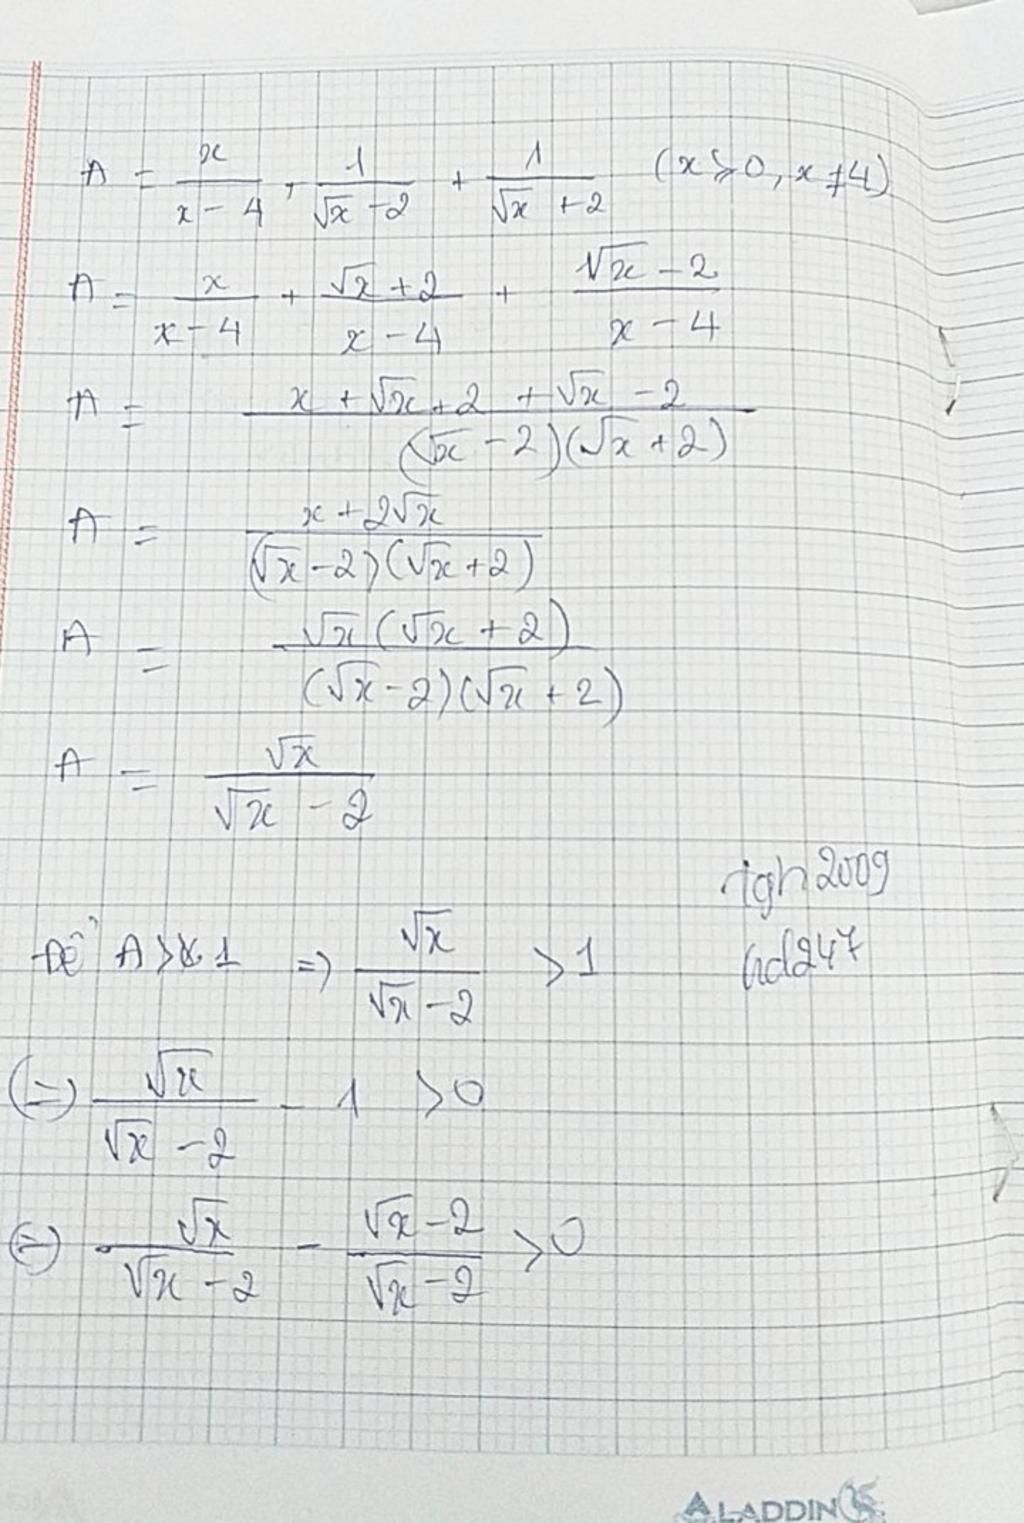 A = x/(x - 4) + 1/(√x - 2) + 1/(√x + 2) (x ≥ 0, x ≠ 4)
A = x/(x - 4) + (√x + 2)/(x - 4) + (√x - 2)/(x - 4)
A = (x + √x + 2 + √x - 2)/((√x - 2)(√x + 2))
A = (x + 2√x)/((√x - 2)(√x + 2))
A = (√x(√x + 2))/((√x - 2)(√x + 2))
A = √x/(√x - 2)
tgh2009
hd247
Để A > 1 => √x/(√x - 2) > 1
(=) √x/(√x - 2) - 1 > 0
(=) √x/(√x - 2) - (√x - 2)/(√x - 2) > 0
ALADDIN